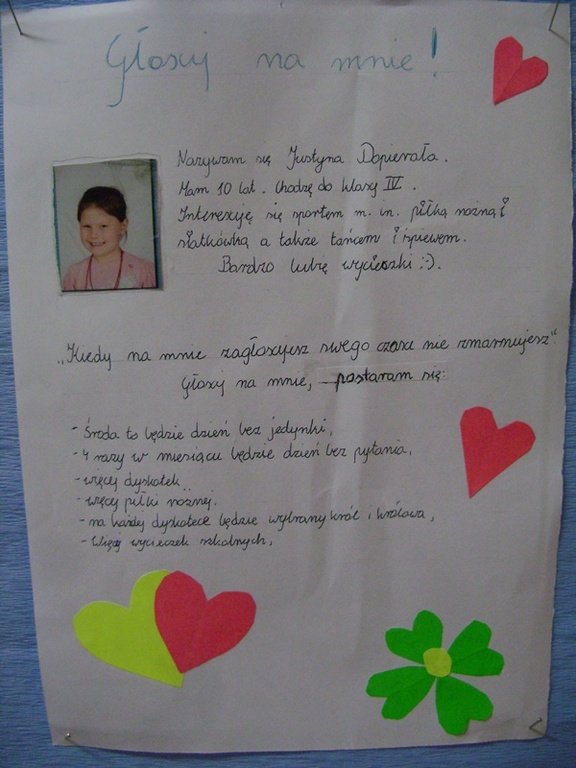 Głosuj na mnie!
Nazywam się Justyna Dopierała.
Mam 10 lat. Chodzę do klasy IV.
Interesuję się sportem m. in. piłką nożną i
siatkówką a także tańcem i śpiewem.
Bardzo lubię wycieczki :-).
„Kiedy na mnie zagłosujesz swego czasu nie zmarnujesz".
Głosuj na mnie, postaram się:
- Środa to będzie dzień bez jedynki,
- 4 razy w miesiącu będzie dzień bez pytania,
- więcej dyskotek
- więcej piłki nożnej.
- na każdej dyskotece będzie wybrany król i królowa,
- Więcej wycieczek szkolnych,